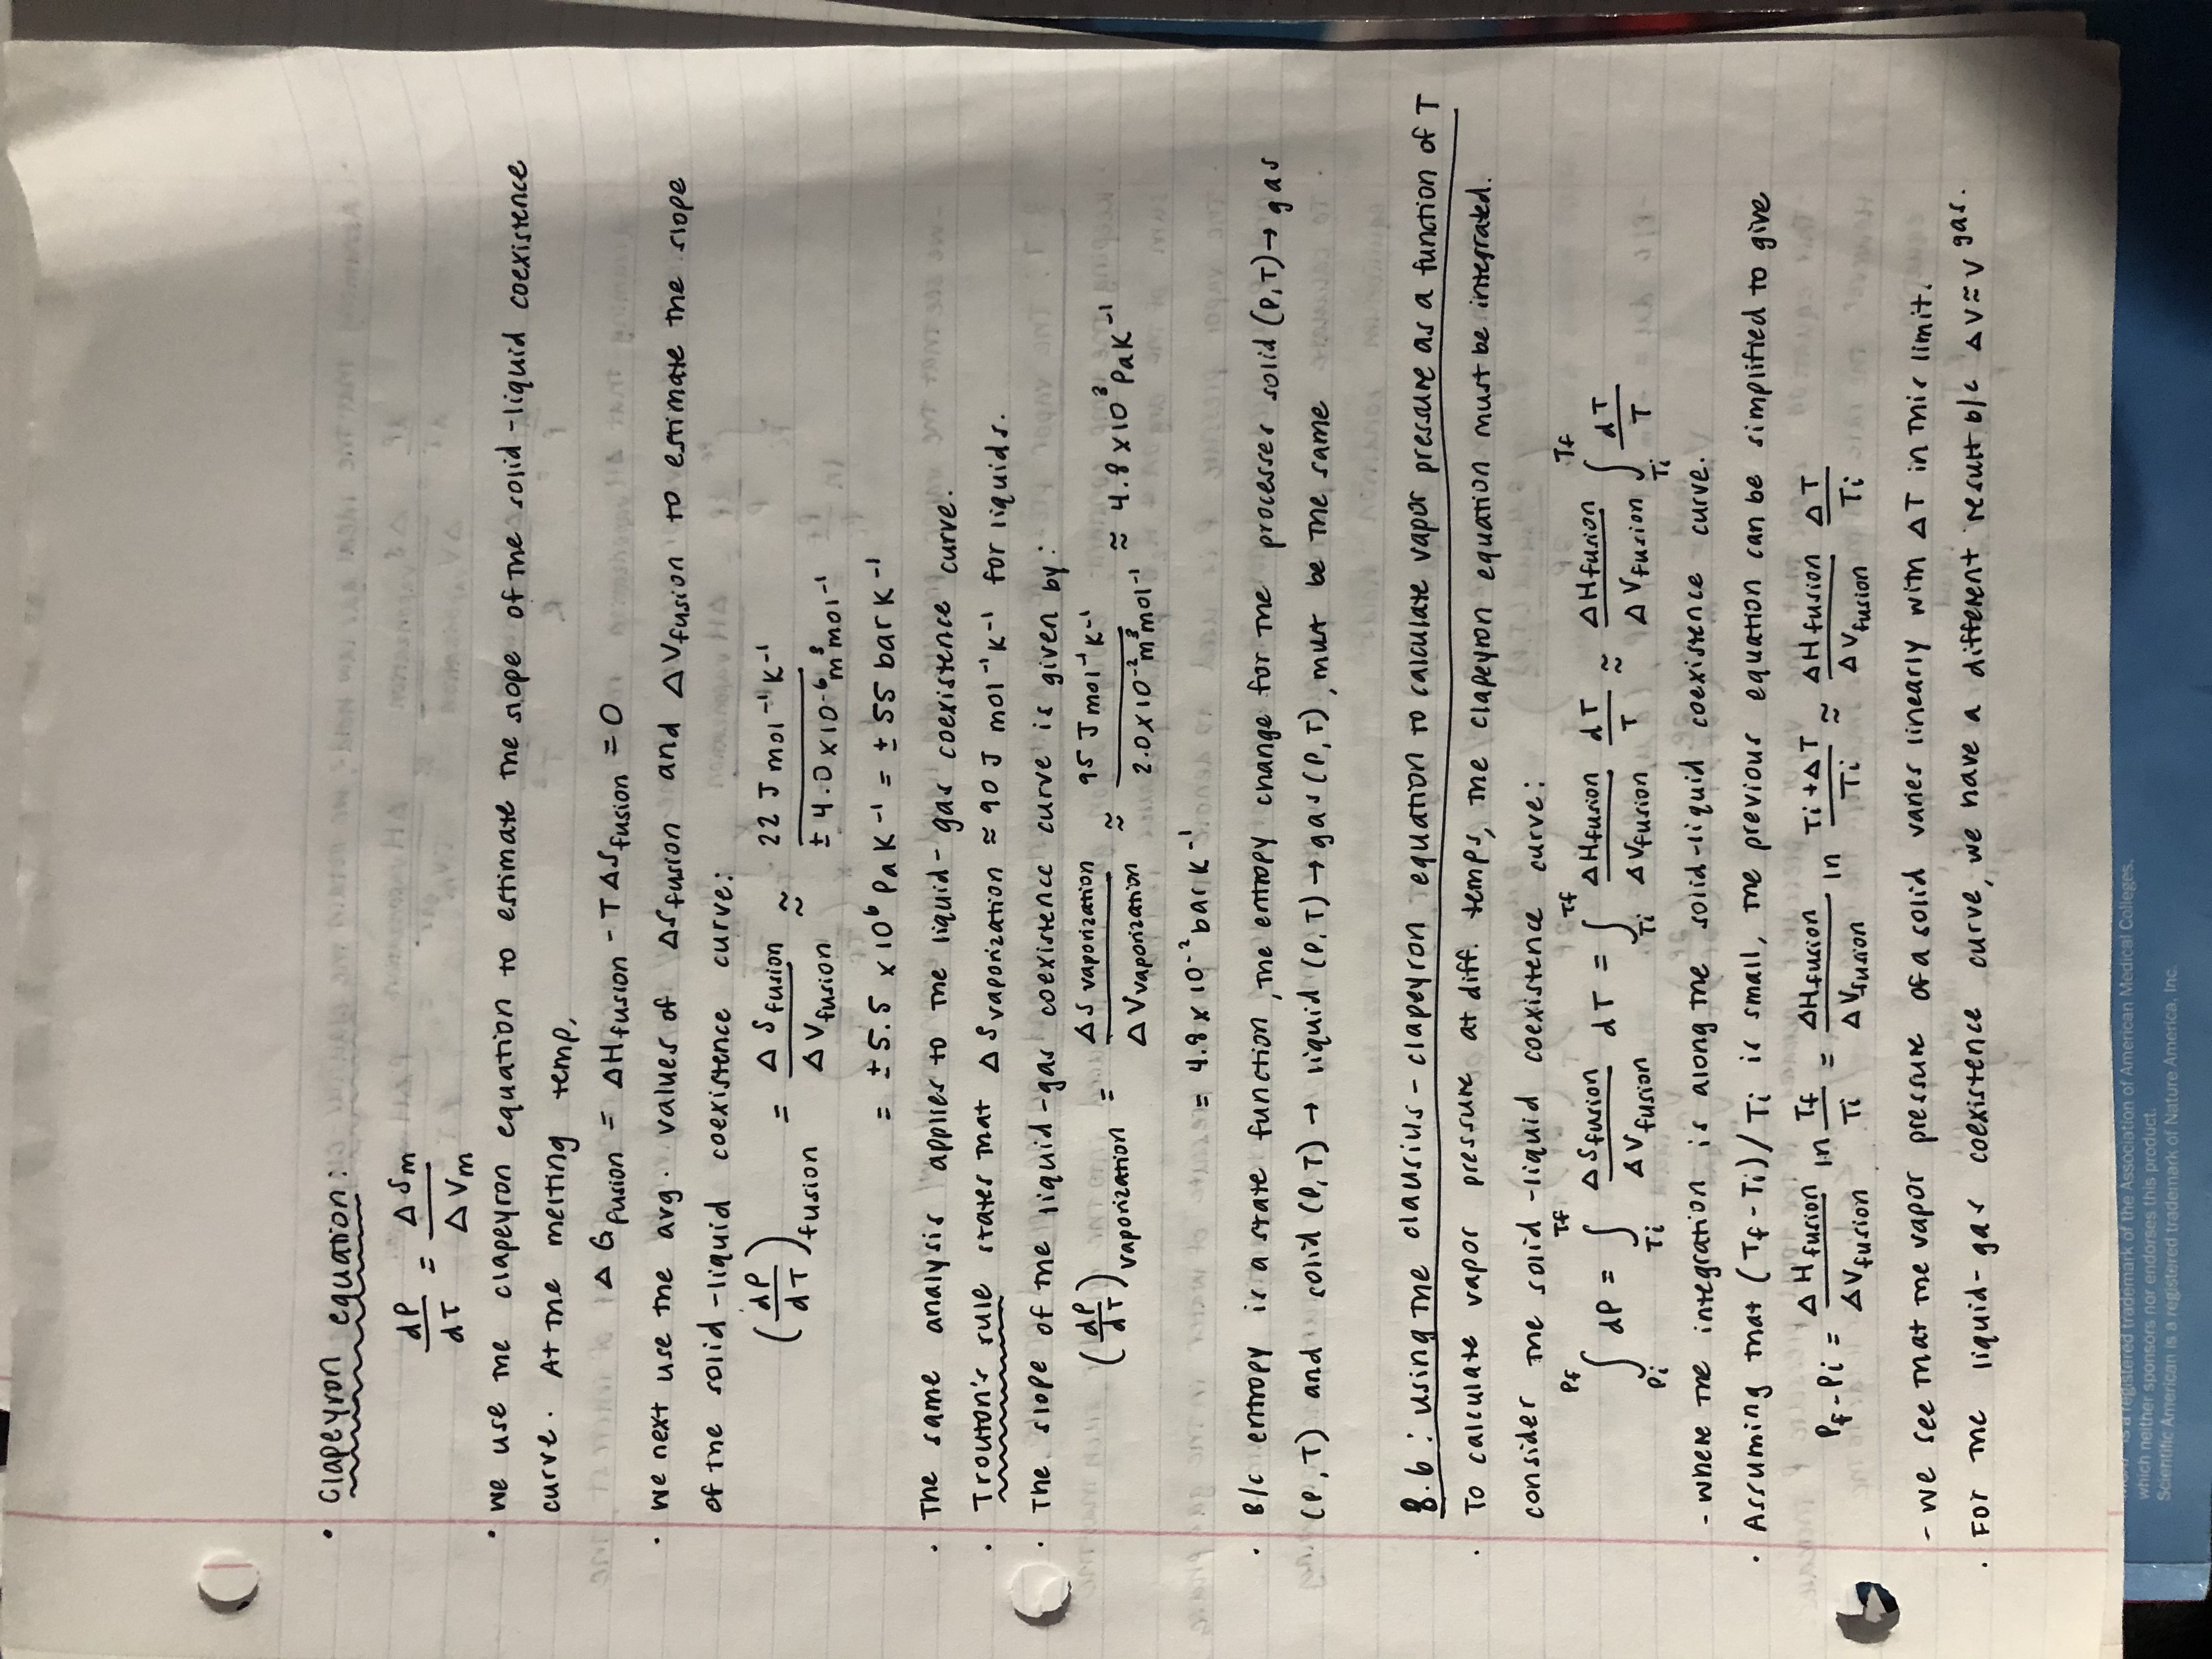 • Clapeyron equation:
dP/dT = ΔSm/ΔVm
• we use the clapeyron equation to estimate the slope of the solid-liquid coexistence
curve. At the melting temp,
ΔGfusion = ΔHfusion - TΔSfusion = 0
• we next use the avg. values of ΔSfusion and ΔVfusion to estimate the slope
of the solid-liquid coexistence curve:
(dP/dT)fusion = ΔSfusion/ΔVfusion ≈ 22 J mol⁻¹ K⁻¹/± 4.0 x 10⁻⁶ m³ mol⁻¹
= ± 5.5 x 10⁶ Pa K⁻¹ = ± 55 bar K⁻¹
• The same analysis applies to the liquid-gas coexistence curve.
• Trouton's rule states that ΔSvaporization ≈ 90 J mol⁻¹ K⁻¹ for liquids.
• The slope of the liquid-gas coexistence curve is given by:
(dP/dT)vaporization = ΔSvaporization/ΔVvaporization ≈ 95 J mol⁻¹ K⁻¹/2.0 x 10⁻² m³ mol⁻¹ ≈ 4.8 x 10³ Pa K⁻¹
= 4.8 x 10⁻² bar K⁻¹
• B/c entropy is a state function, the entropy change for the processes solid (P,T) → gas
(P,T) and solid (P,T) → liquid (P,T) → gas (P,T), must be the same
8.6: using the clausius-clapeyron equation to calculate vapor pressure as a function of T
• To calculate vapor pressure at diff. temps, the clapeyron equation must be integrated.
consider the solid-liquid coexistence curve:
∫_Pi^Pf dP = ∫_Ti^Tf ΔSfusion/ΔVfusion dT = ∫_Ti^Tf ΔHfusion/ΔVfusion dT/T ≈ ΔHfusion/ΔVfusion ∫_Ti^Tf dT/T
- where the integration is along the solid-liquid coexistence curve.
• Assuming that (Tf - Ti)/Ti is small, the previous equation can be simplified to give
Pf - Pi = ΔHfusion/ΔVfusion ln Tf/Ti = ΔHfusion/ΔVfusion ln Ti + ΔT/Ti ≈ ΔHfusion/ΔVfusion ΔT/Ti
- we see that the vapor pressure of a solid varies linearly with ΔT in this limit.
• For the liquid-gas coexistence curve, we have a different result b/c ΔV ≈ V gas.
is a registered trademark of the Association of American Medical Colleges,
which neither sponsors nor endorses this product.
Scientific American is a registered trademark of Nature America, Inc.